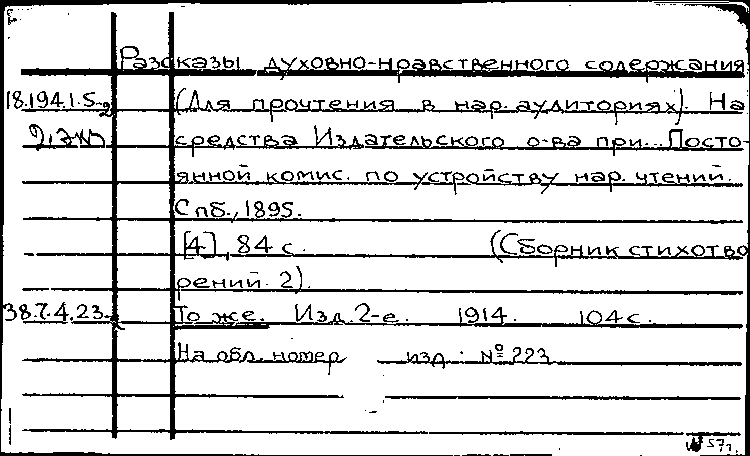 Рассказы духовно-нравственного содержания
18.194.1.5 (Для прочтения в нар. аудиториях). На
2 экз средства Издательского о-ва при... Посто-
янной комис. по устройству нар. чтений.
Спб., 1895.
[4], 84 с. (Сборник стихотво
рений. 2).
38.7.4.23 То же. Изд. 2-е. 1914. 104 с.
На обл. номер изд.: № 223